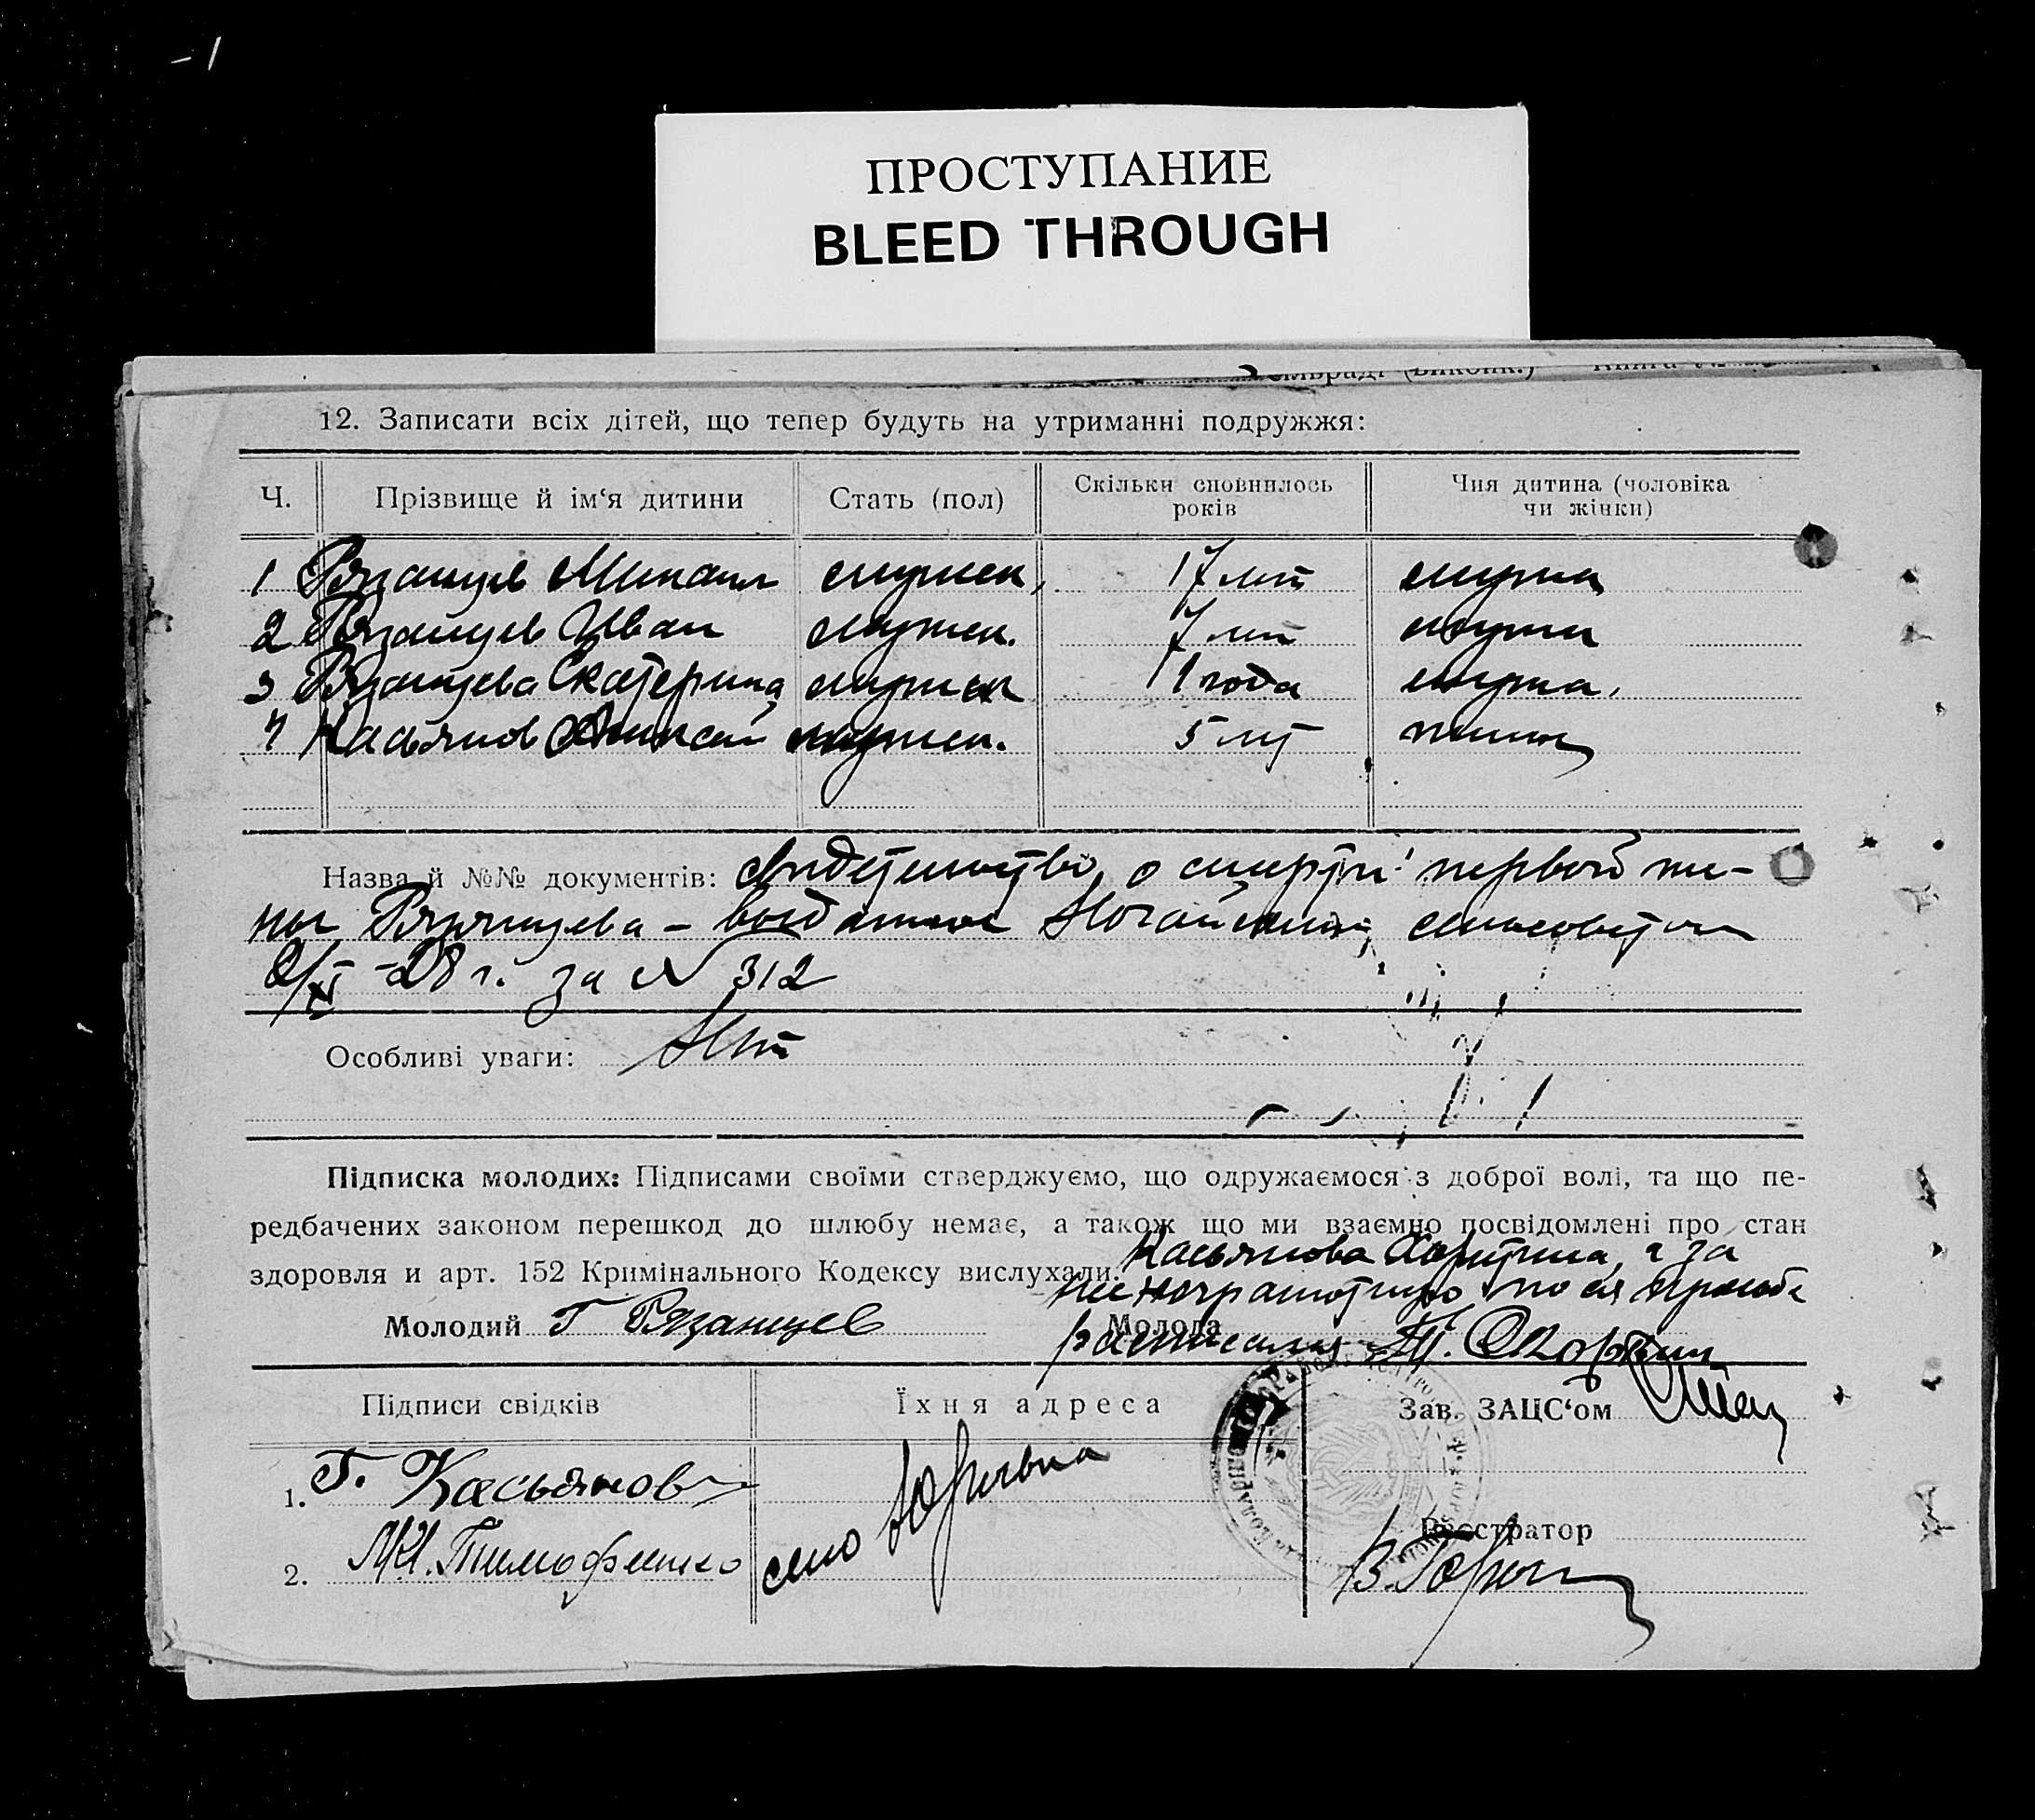 -1
ПРОСТУПАНИЕ
BLEED THROUGH
12. Записати всіх дітей, що тепер будуть на утриманні подружжя:
Ч. Прізвище й ім‘я дитини Стать (пол) Скільки сповнилось років Чия дитина (чоловіка чи жінки)
1 Рязанцев Михаил мужск. 17 лет мужа
2 Рязанцев Иван мужск. 7 лет мужа
3 Рязанцева Екатерина мужск 11 года мужа.
4 Касьянов Алексей мужск. 5 лет жены
Назва й №№ документів: свидетельство о смерти первой же-
ны Рязанцева – выданное Ногайским сельсоветом
-28 г. за N 312
Особливі уваги: Нет
Підписка молодих: Підписами своїми стверджуємо, що одружаємося з доброї волі, та що пе-
редбачених законом перешкод до шлюбу немає, а також що ми взаємно посвідомлені про стан
здоровля и арт. 152 Кримінального Кодексу вислухали.
Касьянова Харитина, а за
нее неграмотную по ея просьбе
Молодий Г Рязанцев Молода расписался
Підписи свідків Їхня адреса Зав. ЗАЦС‘ом
1. Г. Касьянов
село Юрьевка
2. Тимофенко
Реєстратор
В.